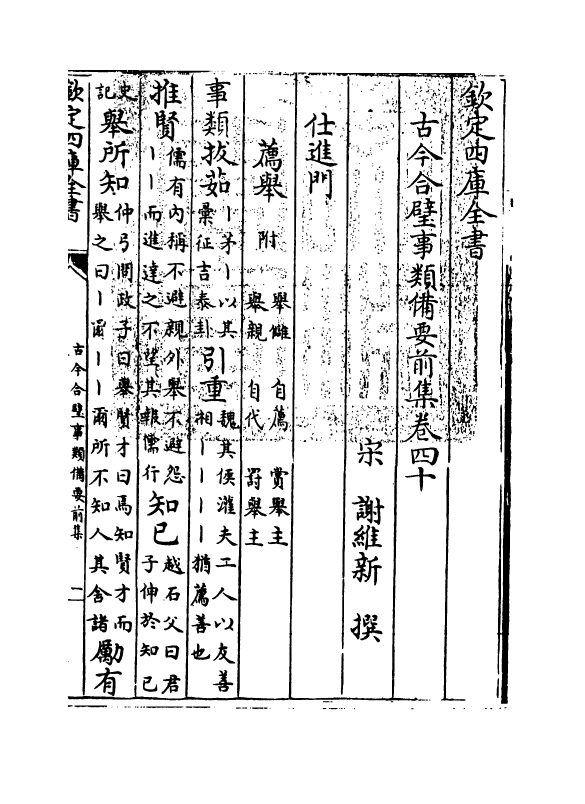 欽定四庫全書
古今合璧事類備要前集卷四十
宋 謝維新 撰
仕進門
薦舉 附 舉讎 自薦 賞舉主
舉親 自代 罰舉主
事類拔茹 丨茅丨以其
彚征吉泰卦
引重 魏其侯灌夫工人以友善
相丨丨丨丨猶薦善也
推賢 儒有內稱不避親外舉不避怨
丨丨而進達之不望其報儒行
知已 越石父曰君
子伸於知已
史
記
舉所知 仲弓問政子曰舉賢才曰焉知賢才而
舉之曰丨爾丨丨爾所不知人其舍諸
勵有
欽定四庫全書
古今合璧事類備要前集
二